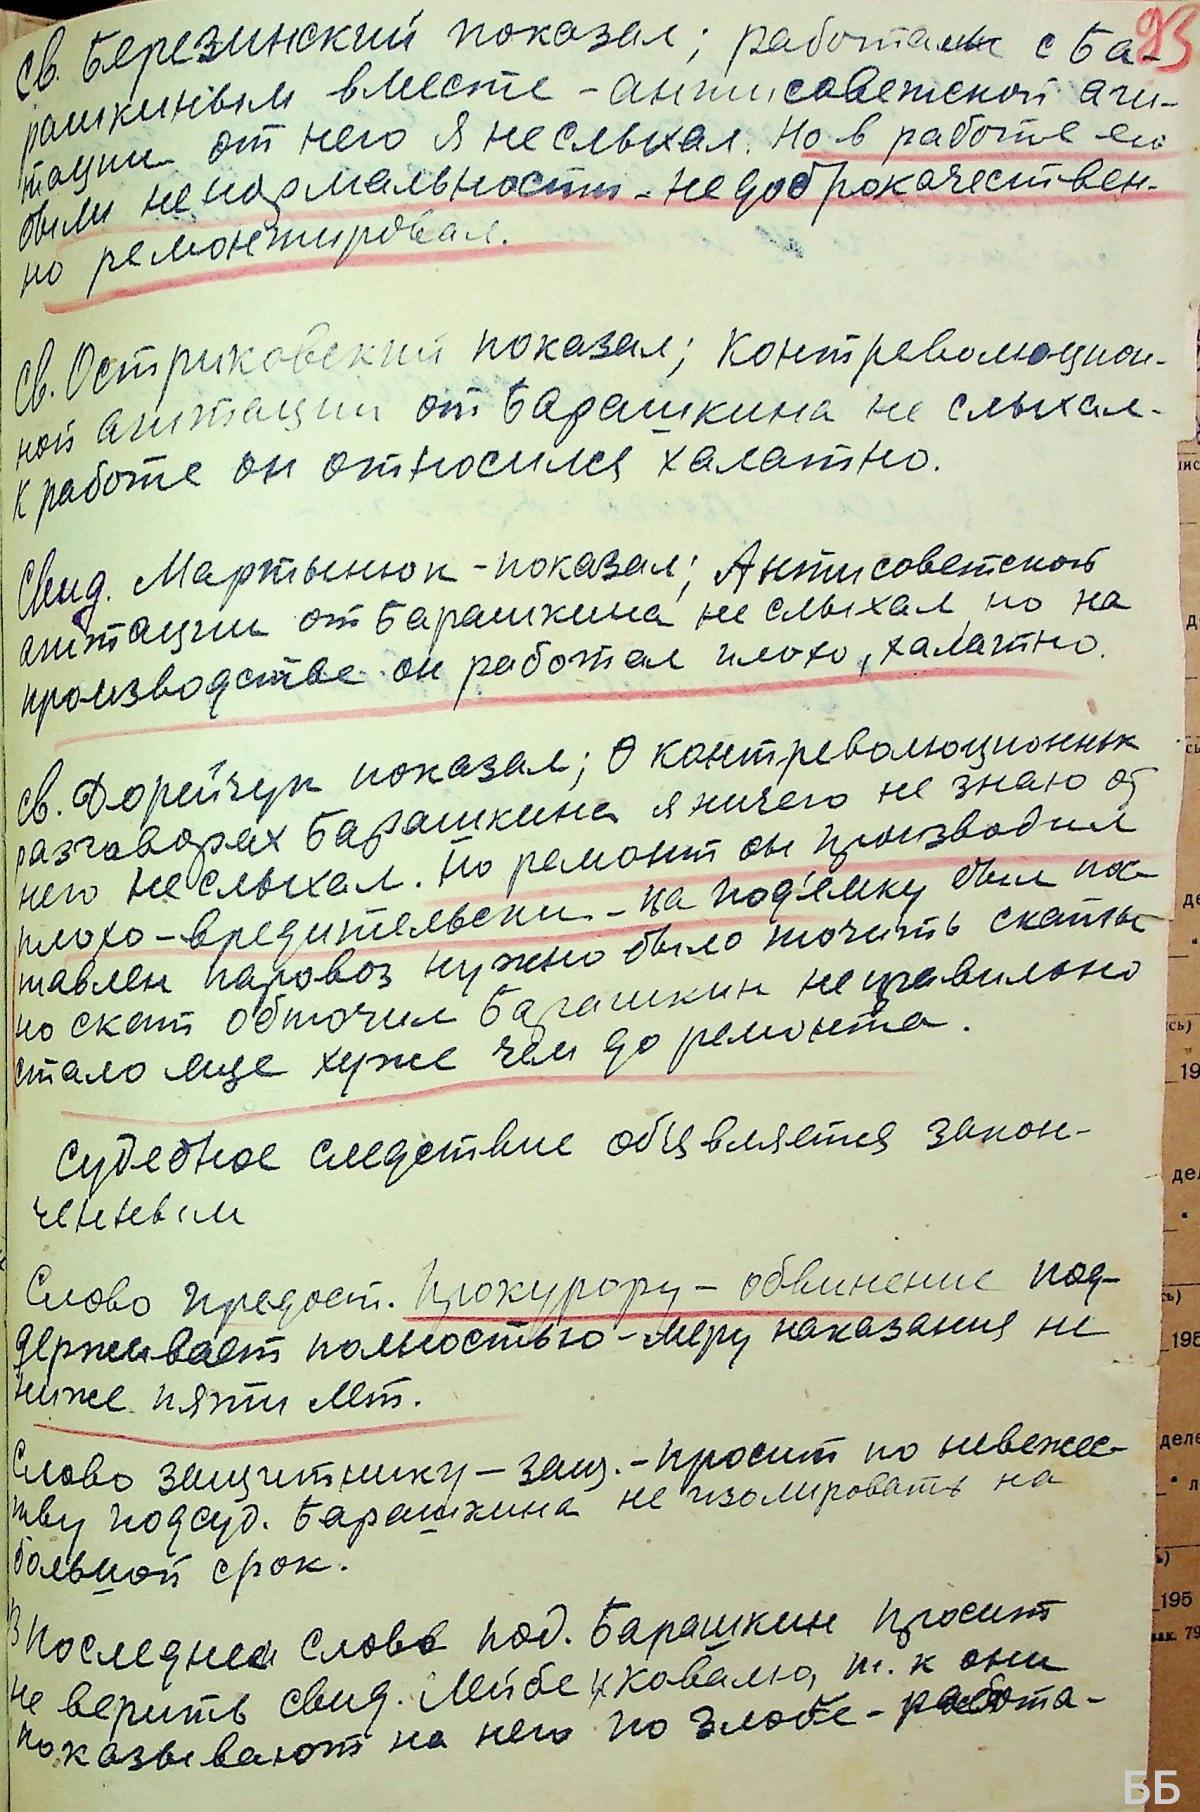 93
св. Березинский показал; работали с Ба-
рашкиным вместе - антисоветской аги-
тации от него я не слыхал. Но в работе его
были ненормальности - недоброкачествен-
но ремонтировал.
Св. Остриковский показал; контреволюцион-
ной агитации от Барашкина не слыхал-
к работе он относился халатно.
Свид. Мартынюк - показал; Антисоветской
агитации от Барашкина не слыхал, но на
производстве он работал плохо, халатно.
св. Дорейчук показал; О контреволюционных
разговорах Барашкина я ничего не знаю от
него не слыхал. Но ремонт он производил
плохо - вредительски - на под'емку был пос-
тавлен паровоз нужно было точить скаты
но скат обточил Барашкин неправильно
стало еще хуже чем до ремонта.
Судебное следствие объявляется закон-
ченным
Слово предост. прокурору - обвинение под-
держивает полностью - меру наказания не
ниже пяти лет.
Слово защитнику - защ. - просит по невежес-
тву подсуд. Барашкина не изолировать на
большой срок.
В последнем слове под. Барашкин просит
не верить свид. Лейбе и Ковалю, т. к они
показывают на него по злобе - работа-
ББ